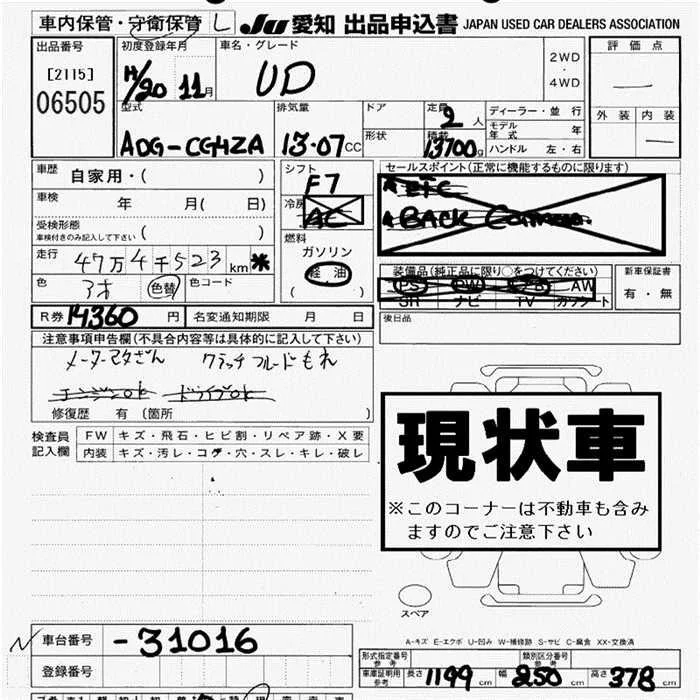 車内保管・守衛保管 L JU 愛知 出品申込書 JAPAN USED CAR DEALERS ASSOCIATION
出品番号 初度登録年月 車名・グレード 評価点
[2115] H/20 11月 UD 2WD・4WD —
06505 外装 内装
型式 排気量 ドア 定員 2人 ディーラー・並行
ADG-CG4ZA 13.07CC 形状 積載 13700 モデル年式 年
ハンドル 左・右 —
車歴 自家用・( ) シフト F7 セールスポイント(正常に機能するものに限ります)
車検 年 月( 日) 冷房 AC ▲ETC
▲BACK Camera.
受検形態 ( )
車検付きのみ記入して下さい
燃料 ガソリン
走行 47万4千523km * 軽油 装備品(純正品に限り○をつけてください) 新車保証書
色 アオ 色替 色コード ( ) PS PW AB AW 有・無
SR ナビ TV カセット
R券 14360円 名変通知期限 月 日 後日品
注意事項申告欄(不具合内容等は具体的に記入して下さい)
メーター改ざん クラッチフルードもれ
エンジンok ドライブok
修復歴 有(箇所 )
検査員記入欄 FW キズ・飛石・ヒビ割・リペア跡・X要
内装 キズ・汚レ・コゲ・穴・スレ・キレ・破レ
現状車
※このコーナーは不動車も含み
ますのでご注意下さい
スペア
A-キズ E-エクボ U-凹み W-補修跡 S-サビ C-腐食 XX-交換済
車台番号 -31016 形式指定番号 参考 類別区分番号 参考
登録番号 車庫証明用 参考 長さ 1199cm 幅 250cm 高さ 378cm